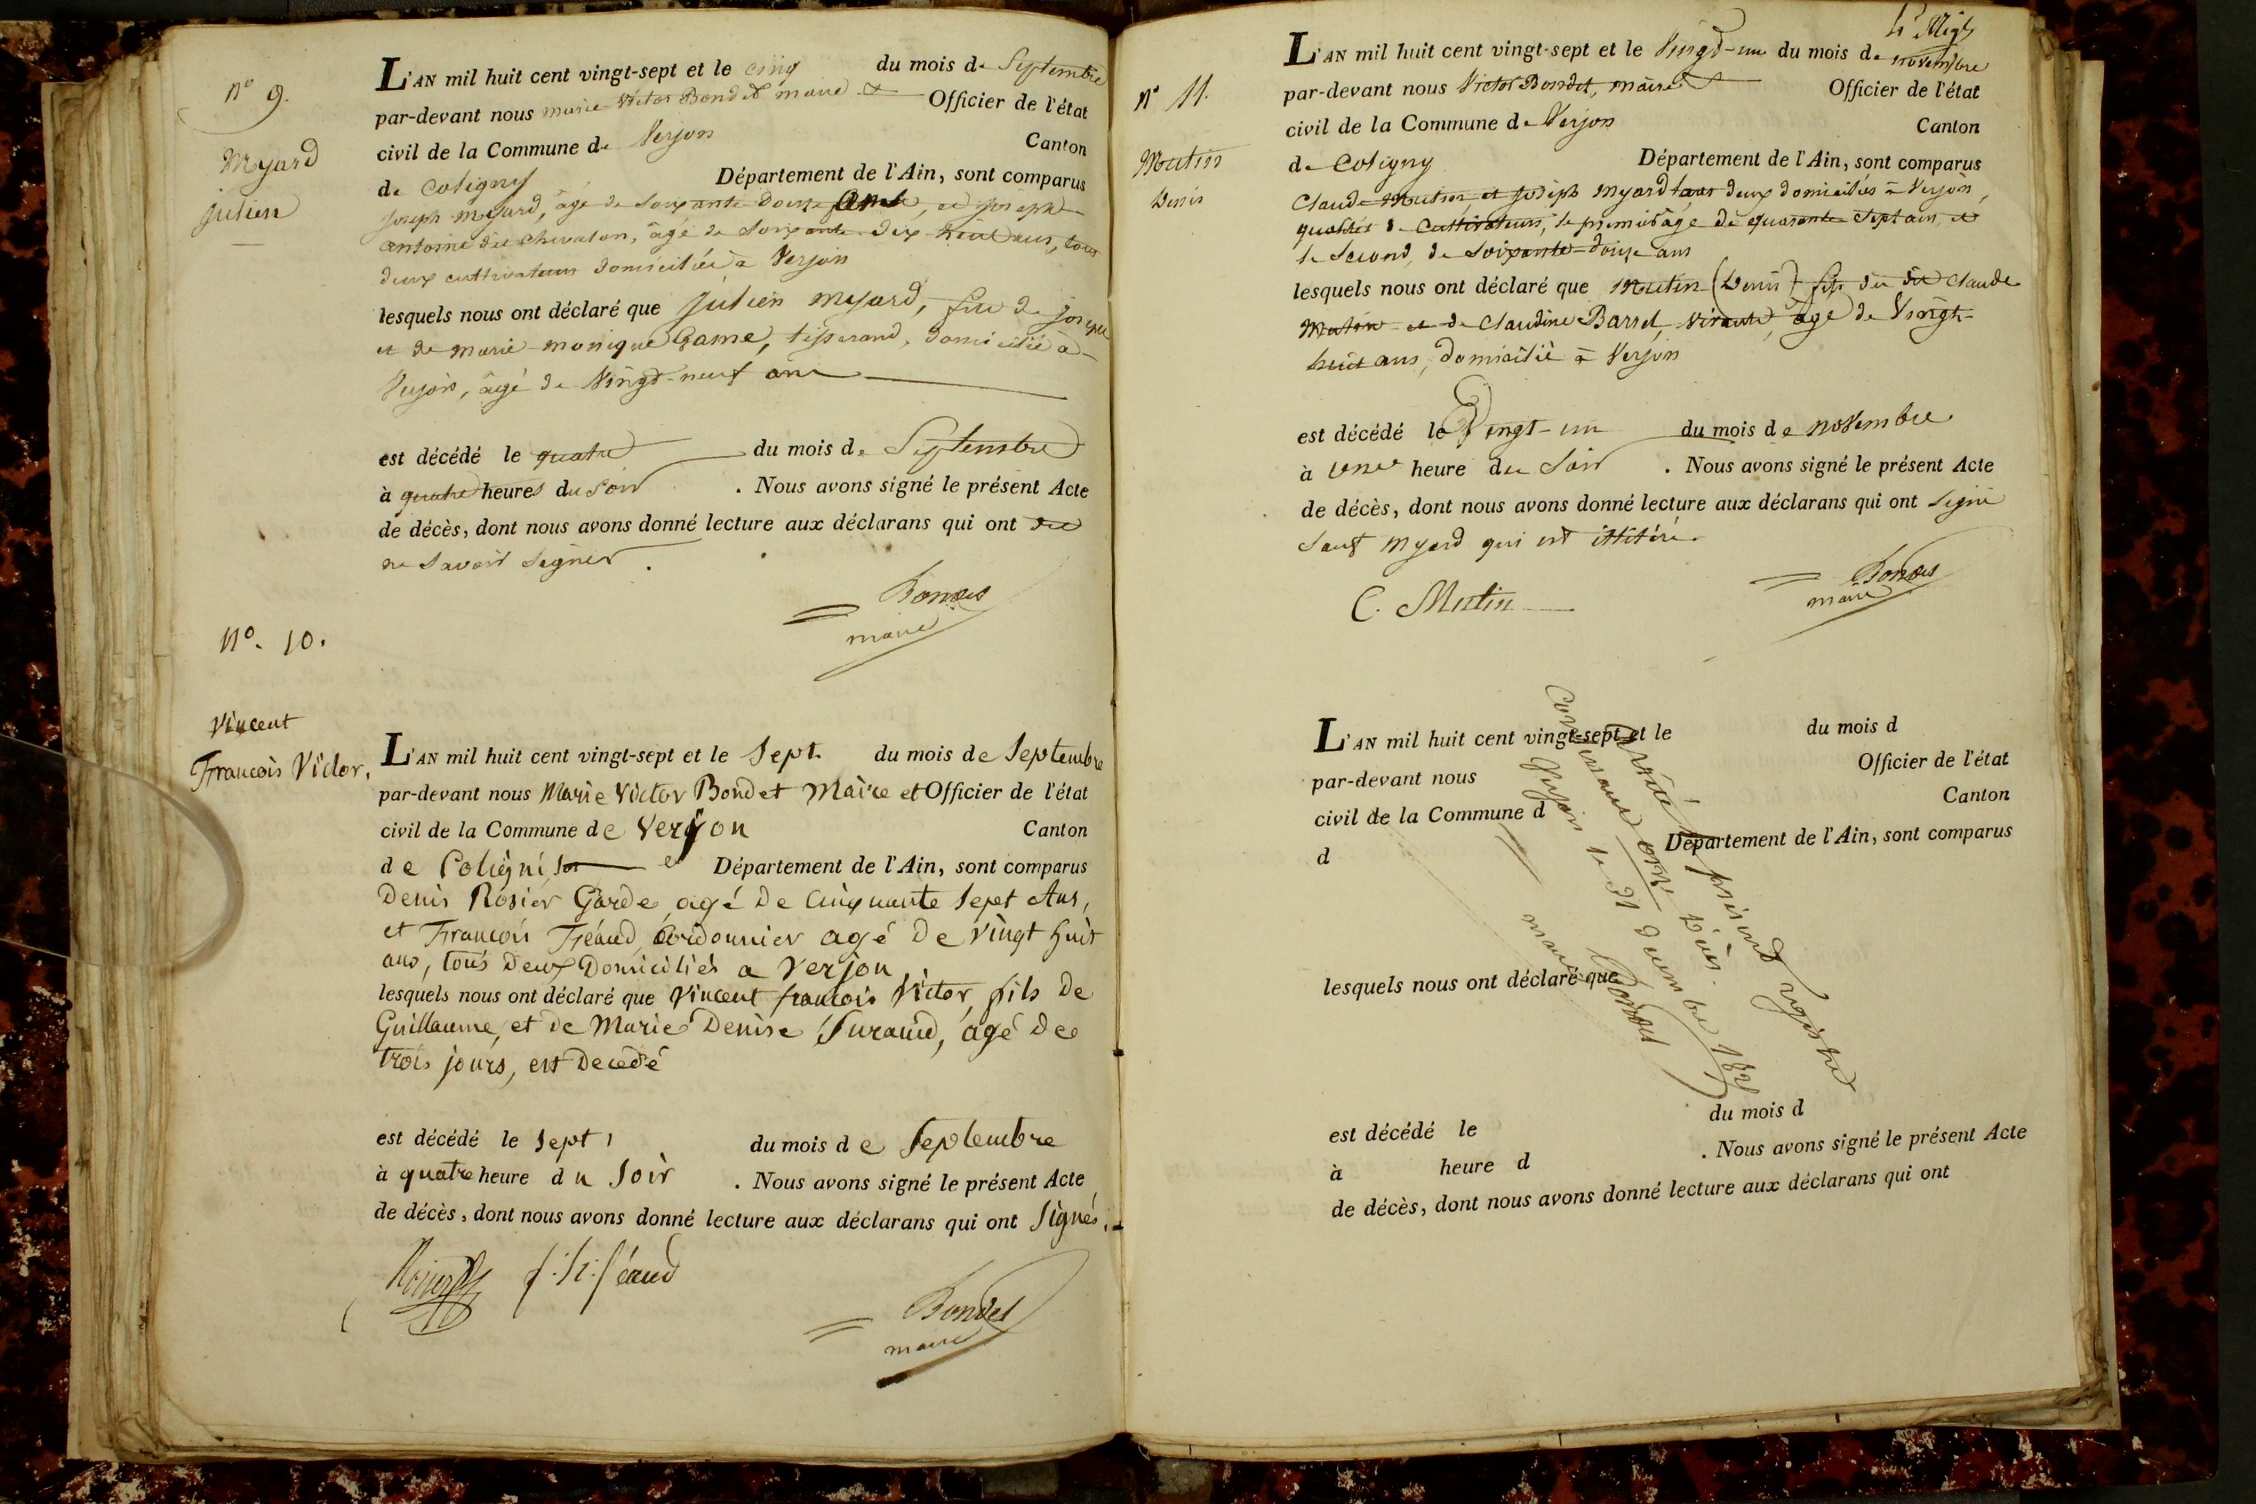 N° 9.
Myard
julien
L'AN mil huit cent vingt-sept et le cinq du mois de Septembre
par-devant nous marie Victor Bondet maire et Officier de l'état
civil de la Commune de Verjon Canton
de Coligny Département de l'Ain, sont comparus
joseph Myard, âgé de soixante-douze ans, et joseph
antoine chevaton, âgé de soixante-dix neuf ans, tous
deux cultivateurs domiciliés à Verjon
lesquels nous ont déclaré que julien Myard, fils de joseph
et de marie-monique Game, tisserand, domicilié à
Verjon, âgé de vingt-neuf ans
est décédé le quatre du mois de Septembre
à quatre heures du soir . Nous avons signé le présent Acte
de décès, dont nous avons donné lecture aux déclarans qui ont dit
ne savoir signer.
Bondet
maire
N°. 10.
Vincent
François Victor.
L'AN mil huit cent vingt-sept et le Sept du mois de Septembre
par-devant nous Marie Victor Bondet Maire et Officier de l'état
civil de la Commune de Verjon Canton
de Coligni Département de l'Ain, sont comparus
Denis Rosier Garde, agé De Cinquante Sept Ans,
et François Féaud Cordonnier agé De Vingt huit
ans, tous Deux Domiciliés a Verjon
lesquels nous ont déclaré que Vincent françois Victor, fils De
Guillaume, et De Marie Denise Furaud, agé De
trois jours, est Decedé
est décédé le Sept du mois de Septembre
à quatre heure du Soir . Nous avons signé le présent Acte
de décès, dont nous avons donné lecture aux déclarans qui ont Signés.
Rosier f. h. féaud
Bondet
maire
N° 11.
Mutin
Denis
L'AN mil huit cent vingt-sept et le Vingt-un du mois de novembre
par-devant nous Victor Bondet, maire et Officier de l'état
civil de la Commune de Verjon Canton
de Coligny Département de l'Ain, sont comparus
Claude Mutin et joseph Myard tous deux domiciliés à Verjon,
qualités de Cultivateurs, le premier âgé de quarante sept ans, et
le second, de soixante-douze ans
lesquels nous ont déclaré que Mutin (Denis) fils du dit Claude
Mutin et de Claudine Barrel, vivante, âgé de Vingt-
huit ans, domicilié à Verjon
est décédé le Vingt-un du mois de novembre
à une heure du soir . Nous avons signé le présent Acte
de décès, dont nous avons donné lecture aux déclarans qui ont signé
sauf Myard qui est illitéré.
C. Mutin
Bondet
maire
L'AN mil huit cent vingt-sept et le du mois d
par-devant nous Officier de l'état
civil de la Commune d Canton
d Département de l'Ain, sont comparus
lesquels nous ont déclaré que
est décédé le du mois d
à heure d . Nous avons signé le présent Acte
de décès, dont nous avons donné lecture aux déclarans qui ont
Arrêté le présent registre
contenant onze décès.
Verjon le 31 décembre 1827
Bondet
maire